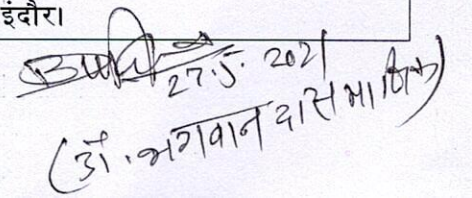 इंदौर।
27.5.2021
(डॉ. भगवान दास माणिक)